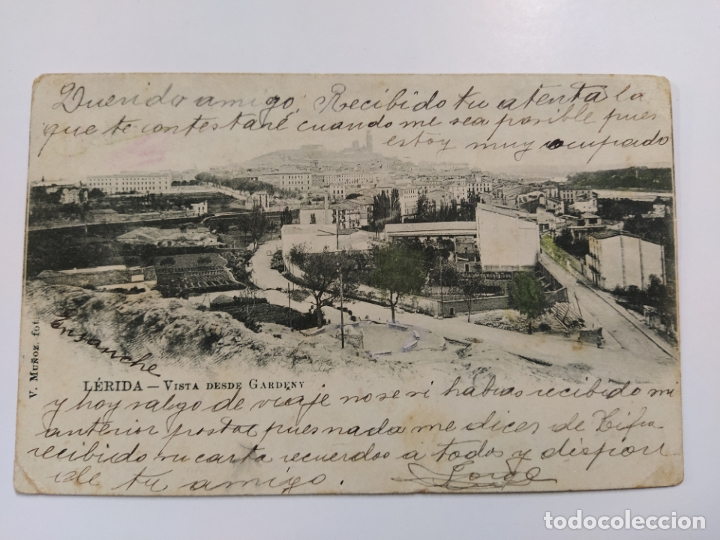 Querido amigo: Recibido tu atenta la
que te contestaré cuando me sea posible pues
estoy muy ocupado
Ensanche
V. MUÑOZ. fot.
LÉRIDA — VISTA DESDE GARDENY
y hoy salgo de viaje no se si habras recibido mi
anterior postal pues nada me dices de
recibido su carta recuerdos a todos y dispon
de tu amigo. Jorge
todocoleccion
todocoleccion.net